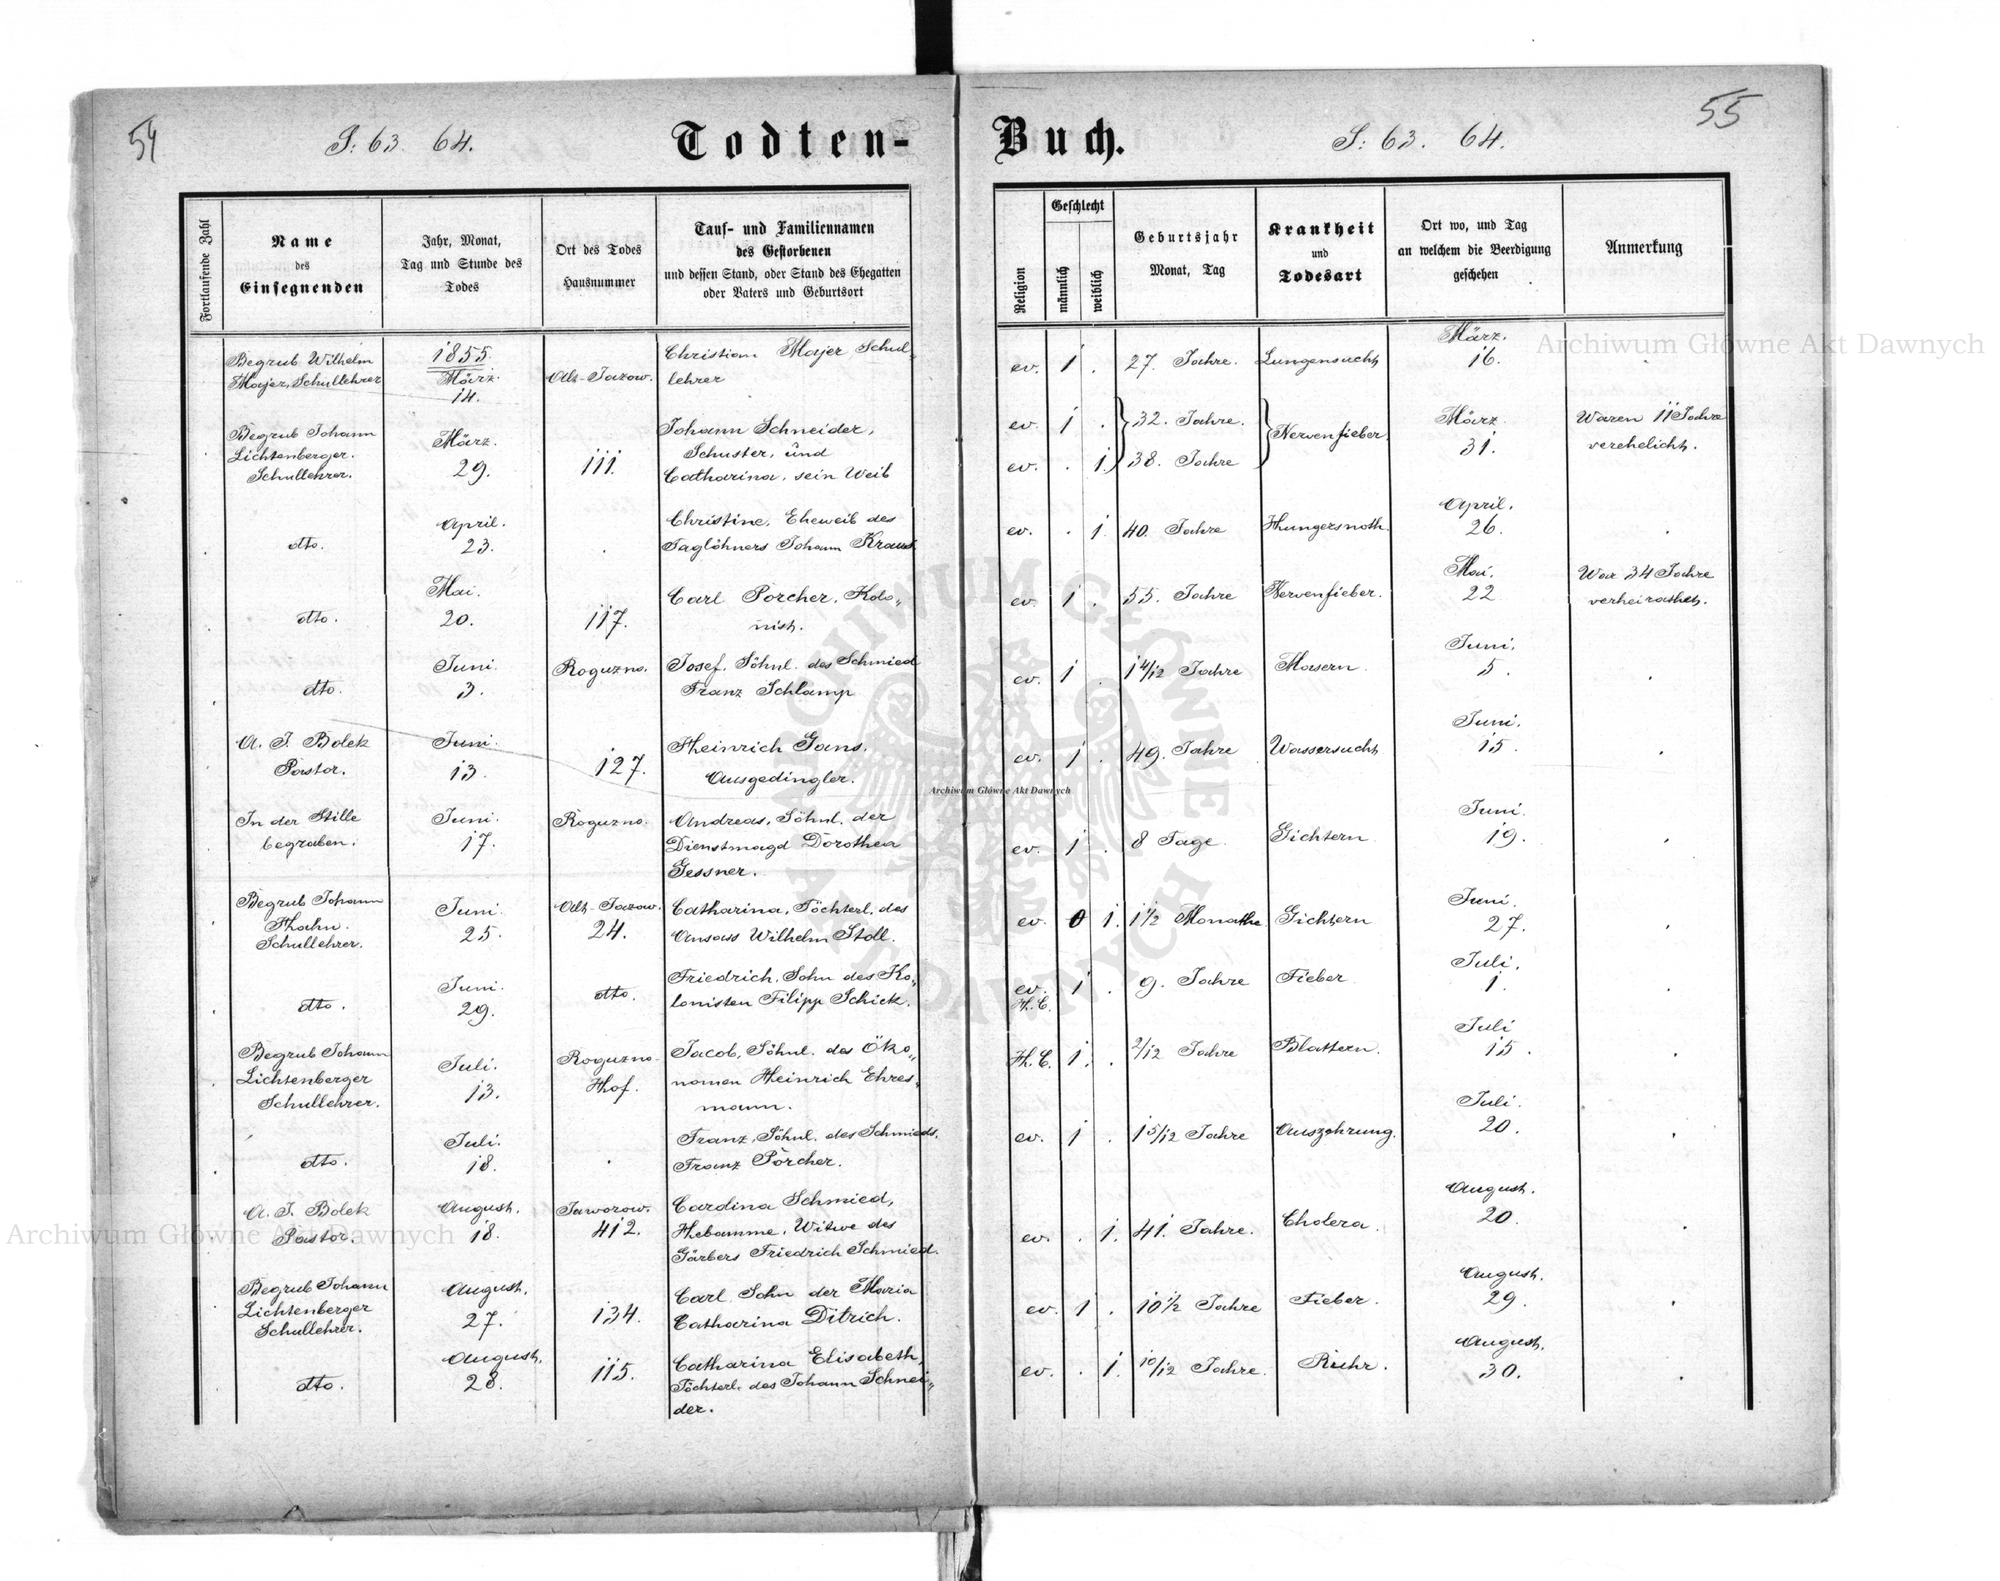 54
S: 63. 64.
Todten-
Fortlaufende Zahl
Name
des
Einsegnenden
Jahr, Monat,
Tag und Stunde des
Todes
Ort des Todes
Hausnummer
Tauf- und Familiennamen
des Gestorbenen
und dessen Stand, oder Stand des Ehegatten
oder Vaters und Geburtsort
Begrub Wilhelm
Majer, Schullehrer
1855.
März.
14.
Alt-Jazow.
Christian Majer, Schul„
lehrer
Begrub Johann
Lichtenberger.
Schullehrer.
März.
29.
111.
Johann Schneider,
Schuster, und
Catharina, sein Weib
dto.
April.
23.
Christine, Eheweib des
Taglöhners Johann Kraus.
dto.
Mai.
20.
117.
Carl Porcher, Kolo„
nist.
dto.
Juni
3.
Roguzno.
Josef, Söhnl. des Schmied
Franz Schlamp
A. J. Bolek
Pastor.
Juni.
13.
127.
Heinrich Gans,
Ausgedingler.
In der Stille
begraben.
Juni.
17.
Roguzno.
Andreas, Söhnl. der
Dienstmagd Dorothea
Gessner.
Begrub Johann
Hahn.
Schullehrer.
Juni.
25.
Alt-Jazow.
24.
Catharina, Töchterl. des
Ansass Wilhelm Stoll.
dto.
Juni.
29.
dto.
Friedrich, Sohn des Ko„
lonisten Filipp Schick.
Begrub Johann
Lichtenberger
Schullehrer.
Juli.
13.
Roguzno-
Hof.
Jacob, Söhnl. des Öko„
nomen Heinrich Ehres„
mann.
dto.
Juli.
18.
Franz, Söhnl. des Schmieds.
Franz Pörcher.
A. J. Bolek
Pastor.
August.
18.
Jaworow.
412.
Carolina Schmied,
Hebamme, Witwe des
Gärbers Friedrich Schmied.
Begrub Johann
Lichtenberger
Schullehrer.
August.
27.
134.
Carl Sohn der Maria
Catharina Ditrich.
dto.
August.
28.
115.
Catharina Elisabeth,
Töchterl. des Johann Schnei„
der.
55
Buch.
S: 63. 64.
Religion
Geschlecht
männlich
weiblich
Geburtsjahr
Monat, Tag
Krankheit
und
Todesart
Ort wo, und Tag
an welchem die Beerdigung
geschehen
Anmerkung
ev. 1 . 27. Jahre. Lungensucht
März.
16.
ev. 1 . 32. Jahre.
ev. . 1. 38. Jahre
Nervenfieber.
März.
31.
Waren 11 Jahre
verehelicht.
ev. . 1. 40. Jahre Hungersnoth.
April.
26.
ev. 1 . 55. Jahre Nervenfieber.
Mai.
22
War 34 Jahre
verheirathet.
ev. 1 . 1 4/12 Jahre Masern.
Juni.
5.
ev. 1 . 49. Jahre Wassersucht
Juni.
15.
ev. 1 . 8 Tage. Gichtern
Juni.
19.
ev. 0 1. 1 1/2 Monathe. Gichtern
Juni.
27.
ev.
H. C.
1 . 9. Jahre Fieber
Juli.
1.
H. C. 1. . 2/12 Jahre Blattern.
Juli
15.
ev. 1 . 1 5/12 Jahre Auszehrung.
Juli.
20.
ev. . 1. 41. Jahre. Cholera.
August.
20.
ev. 1 . 10 1/2 Jahre Fieber.
August.
29.
ev. . 1. 10/12 Jahre. Ruhr.
August.
30.
Archiwum Główne Akt Dawnych
Archiwum Główne Akt Dawnych
Archiwum Główne Akt Dawnych
ARCHIWUM GŁÓWNE AKT DAWNYCH